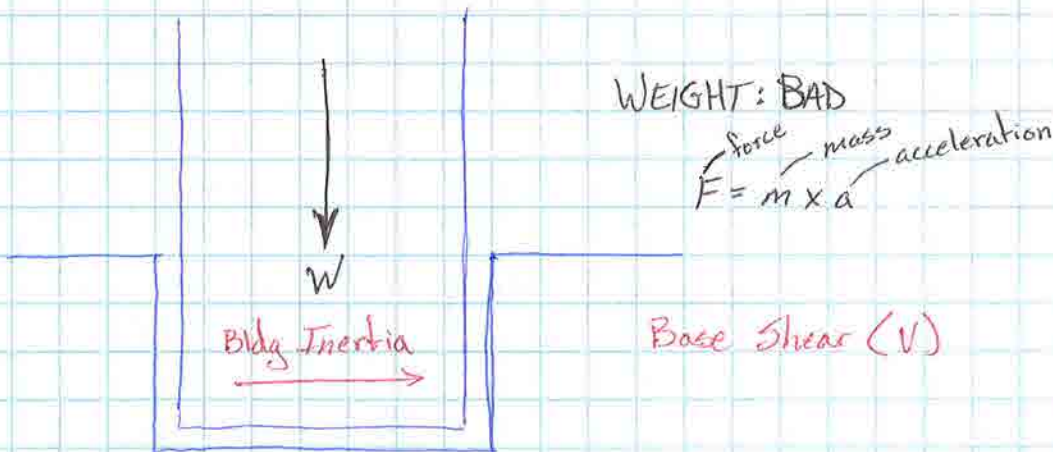 WEIGHT: BAD
force mass acceleration
F = m x a
W
Bldg Inertia
Base Shear (V)